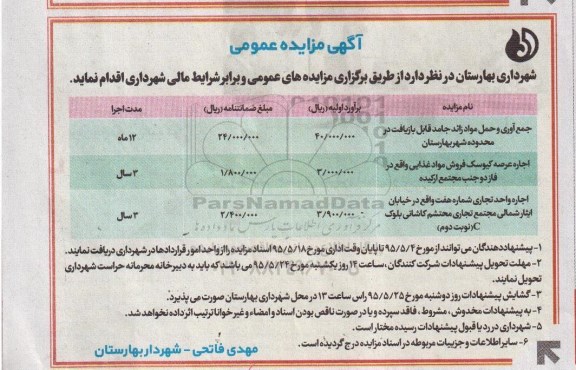 آگهی مزایده عمومی
شهرداری بهارستان در نظر دارد از طریق برگزاری مزایده های عمومی و برابر شرایط مالی شهرداری اقدام نماید.
نام مزایده	برآورد اولیه (ریال)	مبلغ ضمانتنامه (ریال)	مدت اجرا
جمع آوری و حمل مواد زائد جامد قابل بازیافت در
محدوده شهر بهارستان	۴۰/۰۰۰/۰۰۰	۲۴/۰۰۰/۰۰۰	۱۲ ماه
اجاره عرصه کیوسک فروش مواد غذایی واقع در
فاز دو جنب مجتمع ارکیده	۳/۰۰۰/۰۰۰	۱/۸۰۰/۰۰۰	۳ سال
اجاره واحد تجاری شماره هفت واقع در خیابان
ایثار شمالی مجتمع تجاری محتشم کاشانی بلوک
C (نوبت دوم)	۳/۹۰۰/۰۰۰	۲/۴۰۰/۰۰۰	۳ سال
ParsNamadData
۱- پیشنهاددهندگان می توانند از مورخ ۹۵/۵/۴ تا پایان وقت اداری مورخ ۹۵/۵/۱۸ اسناد مزایده را از واحد امور قراردادها در شهرداری دریافت نمایند.
۲- مهلت تحویل پیشنهادات شرکت کنندگان، ساعت ۱۴ روز یکشنبه مورخ ۹۵/۵/۲۴ می باشد که باید به دبیرخانه محرمانه حراست شهرداری
تحویل نمایند.
۳- گشایش پیشنهادات روز دوشنبه مورخ ۹۵/۵/۲۵ راس ساعت ۱۳ در محل شهرداری بهارستان صورت می پذیرد.
۴- به پیشنهادات مخدوش، مشروط، فاقد سپرده و یا در صورت ناقص بودن اسناد و امضاء و غیر خوانا ترتیب اثر داده نخواهد شد.
۵- شهرداری در رد یا قبول پیشنهادات رسیده مختار است.
۶- سایر اطلاعات و جزییات مربوطه در اسناد مزایده درج گردیده است.
مهدی فاتحی - شهردار بهارستان